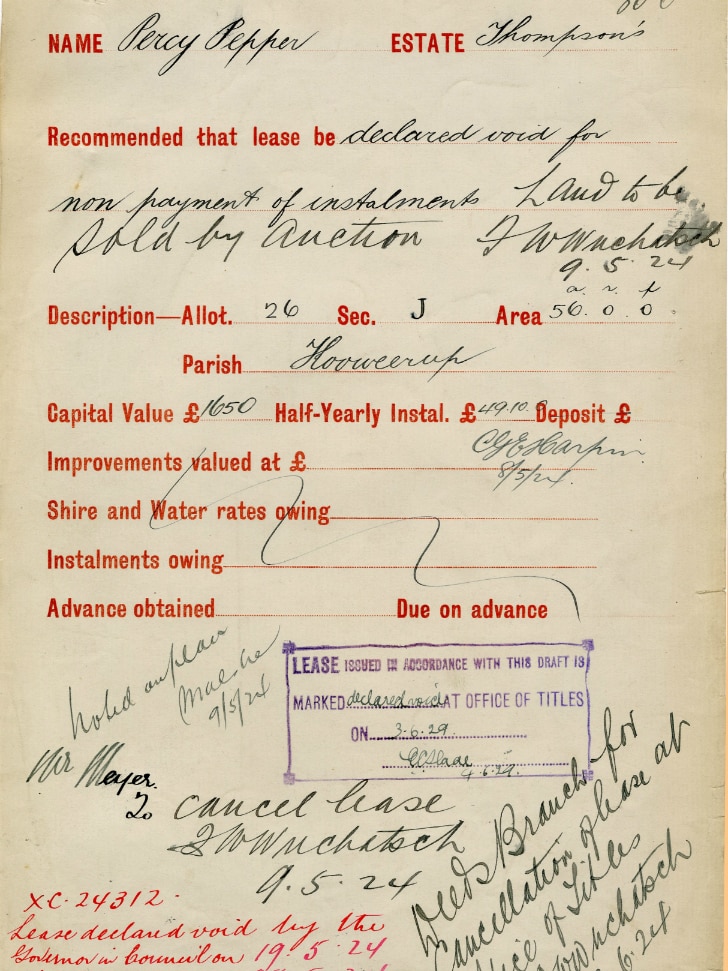 NAME Percy Pepper ESTATE Thompson's
Recommended that lease be declared void for
non payment of instalments Land to be
sold by Auction F W Wuchatsch
9. 5. 24
a. r. p
Description—Allot. 26 Sec. J Area 56. 0. 0
Parish Kooweerup
Capital Value £1650 Half-Yearly Instal. £49.10. Deposit £
C G E Harpin
8/5/24.
Improvements valued at £
Shire and Water rates owing
Instalments owing
Advance obtained Due on advance
Noted on plan
9/5/24
LEASE ISSUED IN ACCORDANCE WITH THIS DRAFT IS
MARKED declared void AT OFFICE OF TITLES
ON 3.6.29.
4.6.29.
Mr Meyer.
To cancel lease
F W Wuchatsch
9. 5. 24
Deeds Branch for
Cancellation of lease at
Office of Titles
Wuchatsch
6. 24
XC. 24312.
Lease declared void by the
Governor in Council on 19. 5. 24